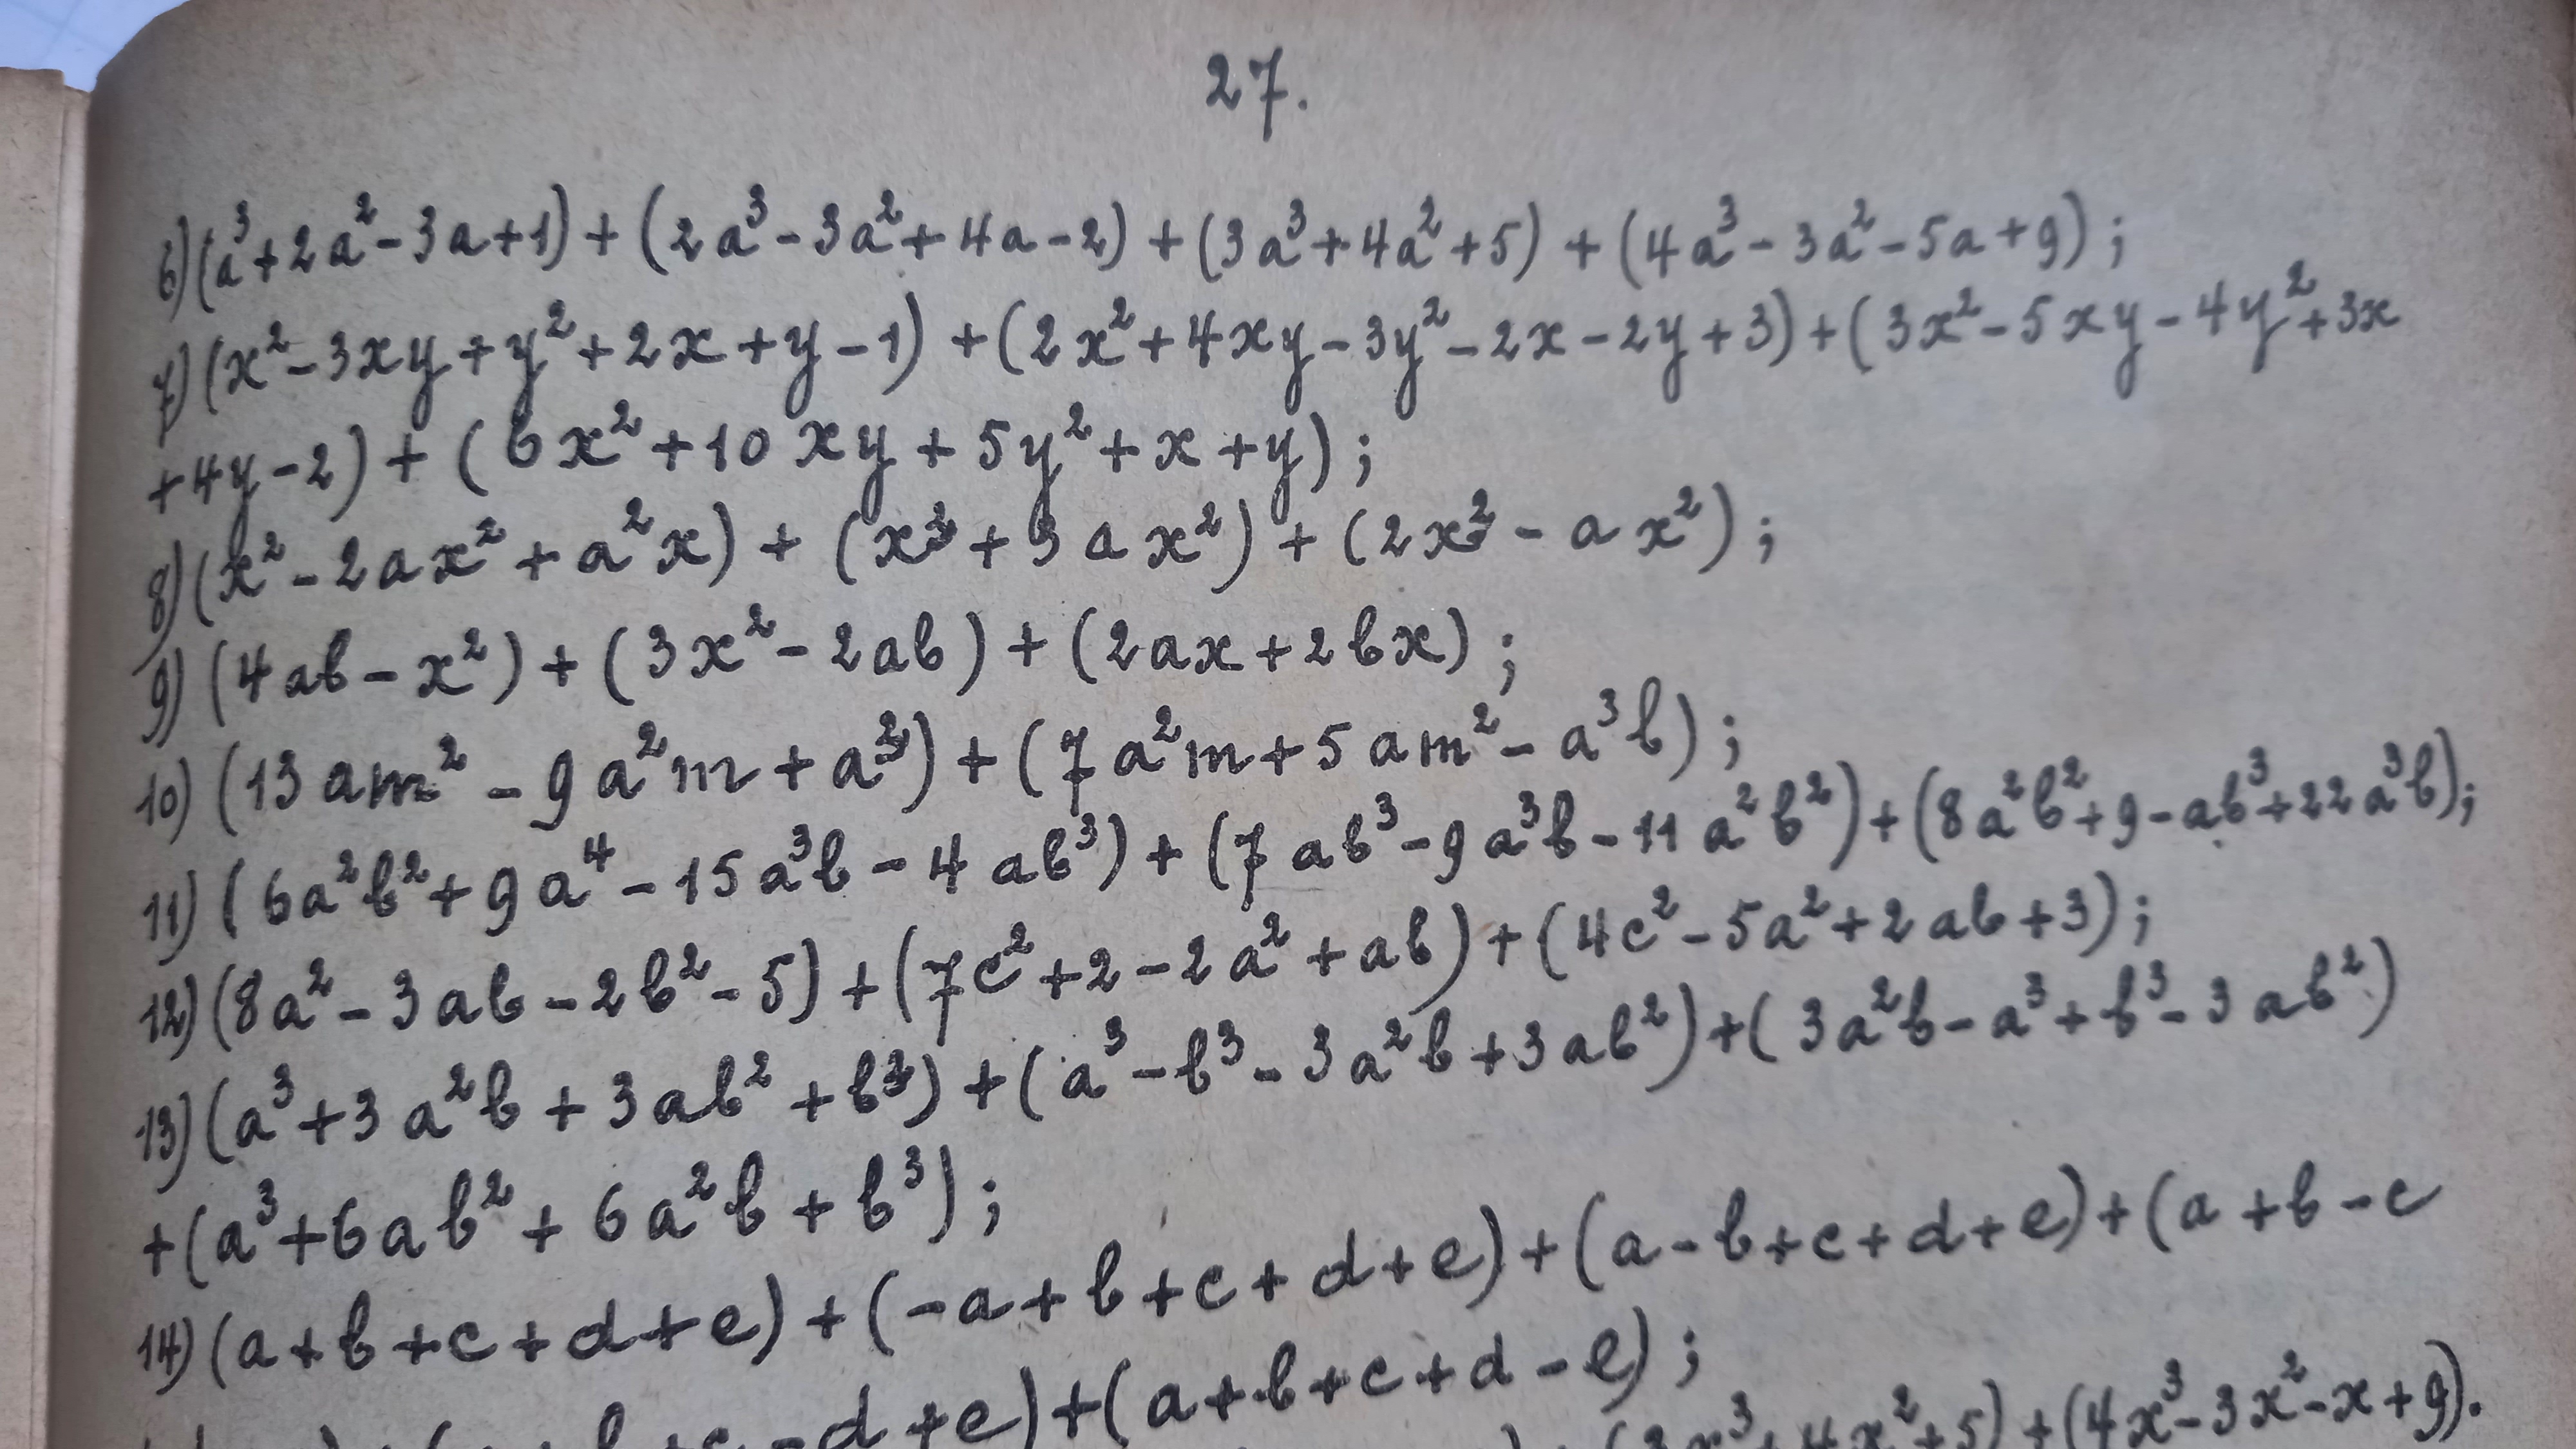 27.
6) (a³+2a²-3a+1) + (2a³-3a²+4a-2) + (3a³+4a²+5) + (4a³-3a²-5a+9);
7) (x²-3xy+y²+2x+y-1) + (2x²+4xy-3y²-2x-2y+3) + (3x²-5xy-4y²+3x
+4y-2) + (6x²+10xy+5y²+x+y);
8) (x²-2ax²+a²x) + (x³+3ax²) + (2x²-ax²);
9) (4ab-x²) + (3x²-2ab) + (2ax+2bx);
10) (13am²-9a²m+a³) + (7a²m+5am²-a³b);
11) (6a²b²+9a⁴-15a³b-4ab³) + (7ab³-9a³b-11a²b²) + (8a²b²+9-ab³+22a³b);
12) (8a²-3ab-2b²-5) + (7c²+2-2a²+ab) + (4c²-5a²+2ab+3);
13) (a³+3a²b+3ab²+b³) + (a³-b³-3a²b+3ab²) + (3a²b-a³+b³-3ab²)
+(a³+6ab²+6a²b+b³);
14) (a+b+c+d+e) + (-a+b+c+d+e) + (a-b+c+d+e) + (a+b-c
-d+e) + (a+b+c+d-e);
+4x²+5) + (4x³-3x²-x+9).